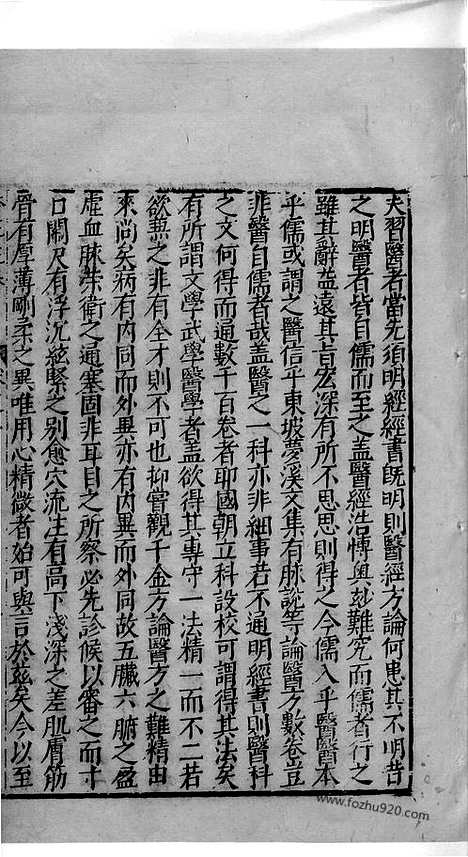 夫習醫者當先須明經經書既明則醫經方論何患其不明昔
之明醫者皆自儒而至之盖醫經浩愽奥玅難究而儒者行之
雖其辭益遠其旨宏深有所不思思則得之今儒入乎醫醫本
乎儒或謂之醫信乎東坡夢溪文集有脉說等論醫方數卷豈
非醫自儒者哉盖醫之一科亦非細事若不通明經書則醫科
之文何得而通數千百卷者耶國朝立科設校可謂得其法矣
有所謂文學武學醫學者盖欲得其專守一法精一而不二若
欲棊之非有全才則不可也抑嘗觀千金方論醫方之難精由
來尚矣病有内同而外異亦有内異而外同故五臟六腑之盈
虚血脉榮衛之通塞固非耳目之所察必先診候以審之而寸
口關尺有浮沉絃緊之别愈穴流注有高下淺深之差肌膚筋
骨有厚薄剛柔之異唯用心精微者始可與言於兹矣今以至
www.fozhu920.com